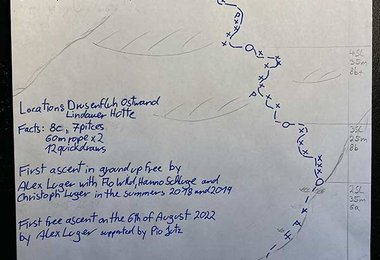 4SL
35m
8b+
Location: Drusenfluh Ostwand
Lindauer Hütte
Facts: 8c, 7pitces
60m rope x 2
12quickdraws
3SL
25m
8b
First ascent in ground up free by
Alex Luger with Flo Wild, Hanno Schluge and
Christoph Luger in the summers 2018 and 2019
2SL
35m
6a
First free ascent on the 6th of August 2022
by Alex Luger supported by Pio Jutz